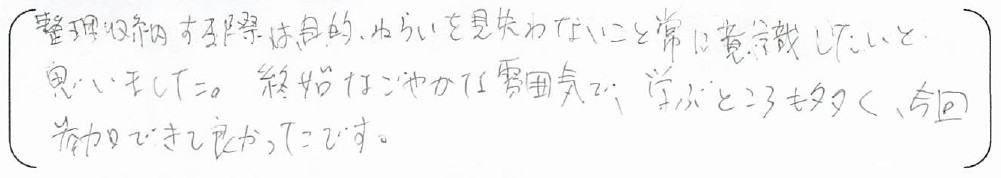 整理収納する際は、目的、ねらいを見失わないこと常に意識したいと
思いました。終始なごやかな雰囲気で、学ぶところも多く、今回
参加できて良かったです。